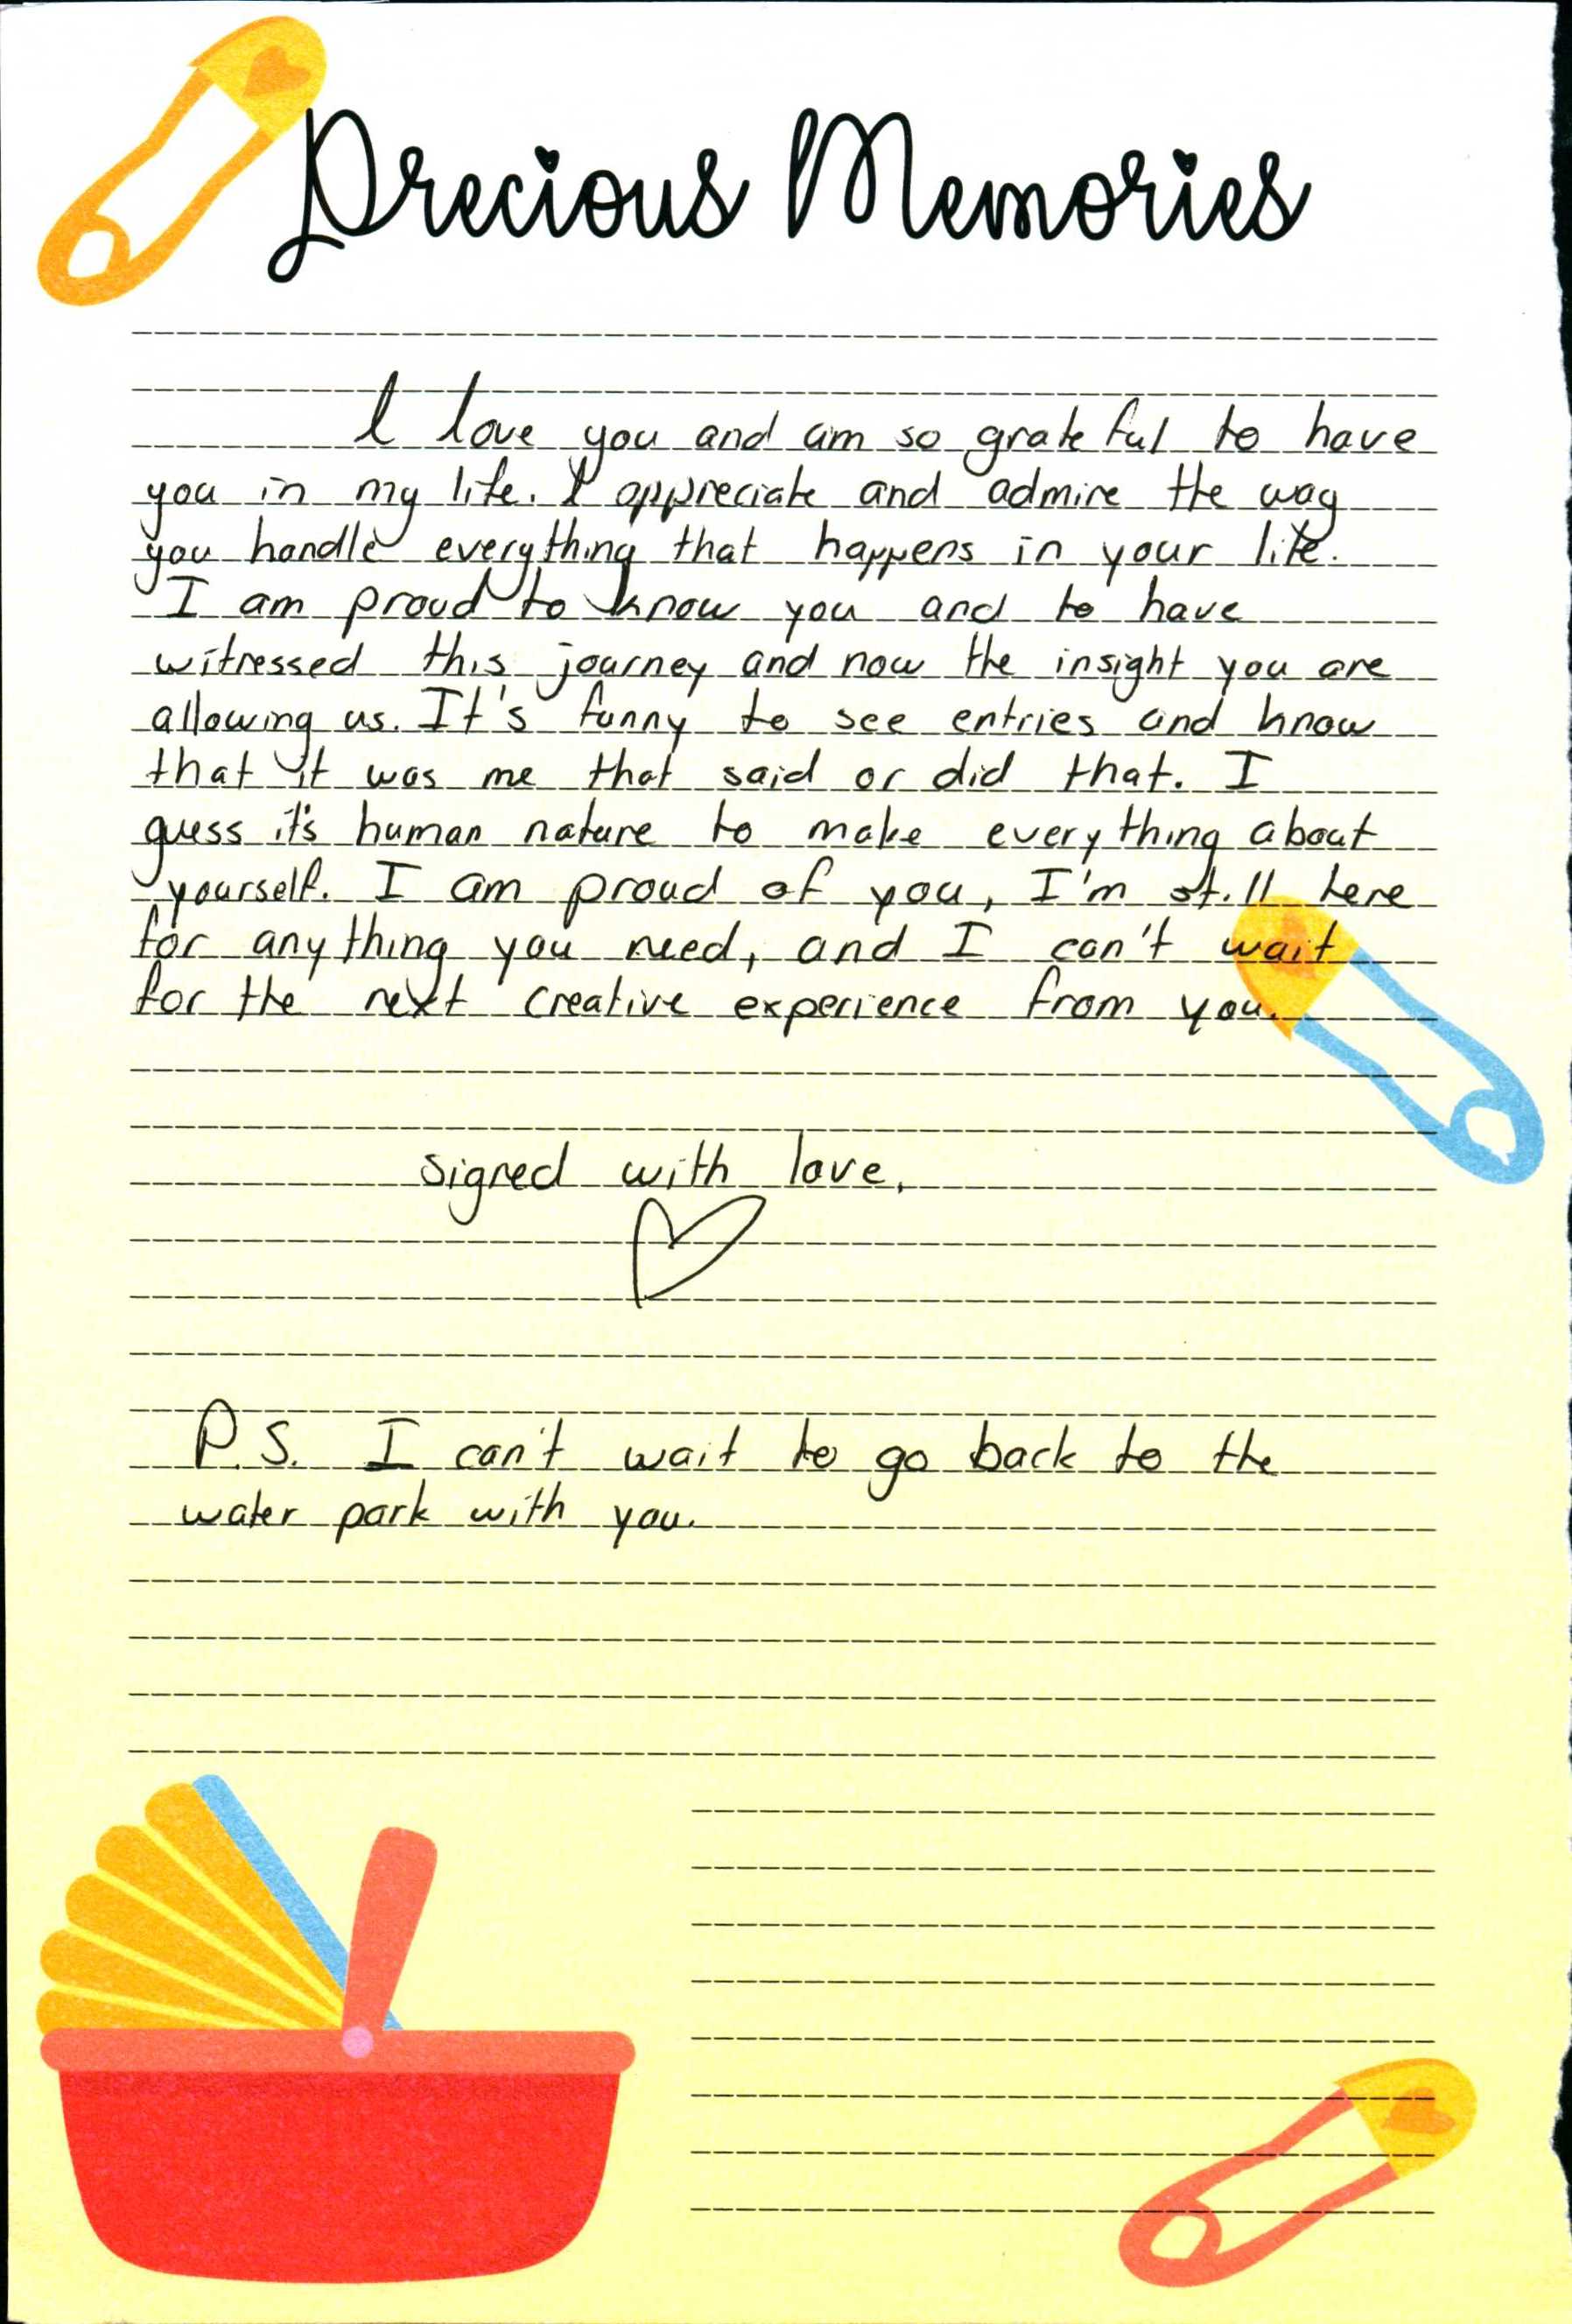 Precious Memories
I love you and am so grateful to have
you in my life. I appreciate and admire the way
you handle everything that happens in your life.
I am proud to know you and to have
witnessed this journey and now the insight you are
allowing us. It's funny to see entries and know
that it was me that said or did that. I
guess it's human nature to make everything about
yourself. I am proud of you, I'm still here
for anything you need, and I can't wait
for the next creative experience from you.
signed with love,
P.S. I can't wait to go back to the
water park with you.